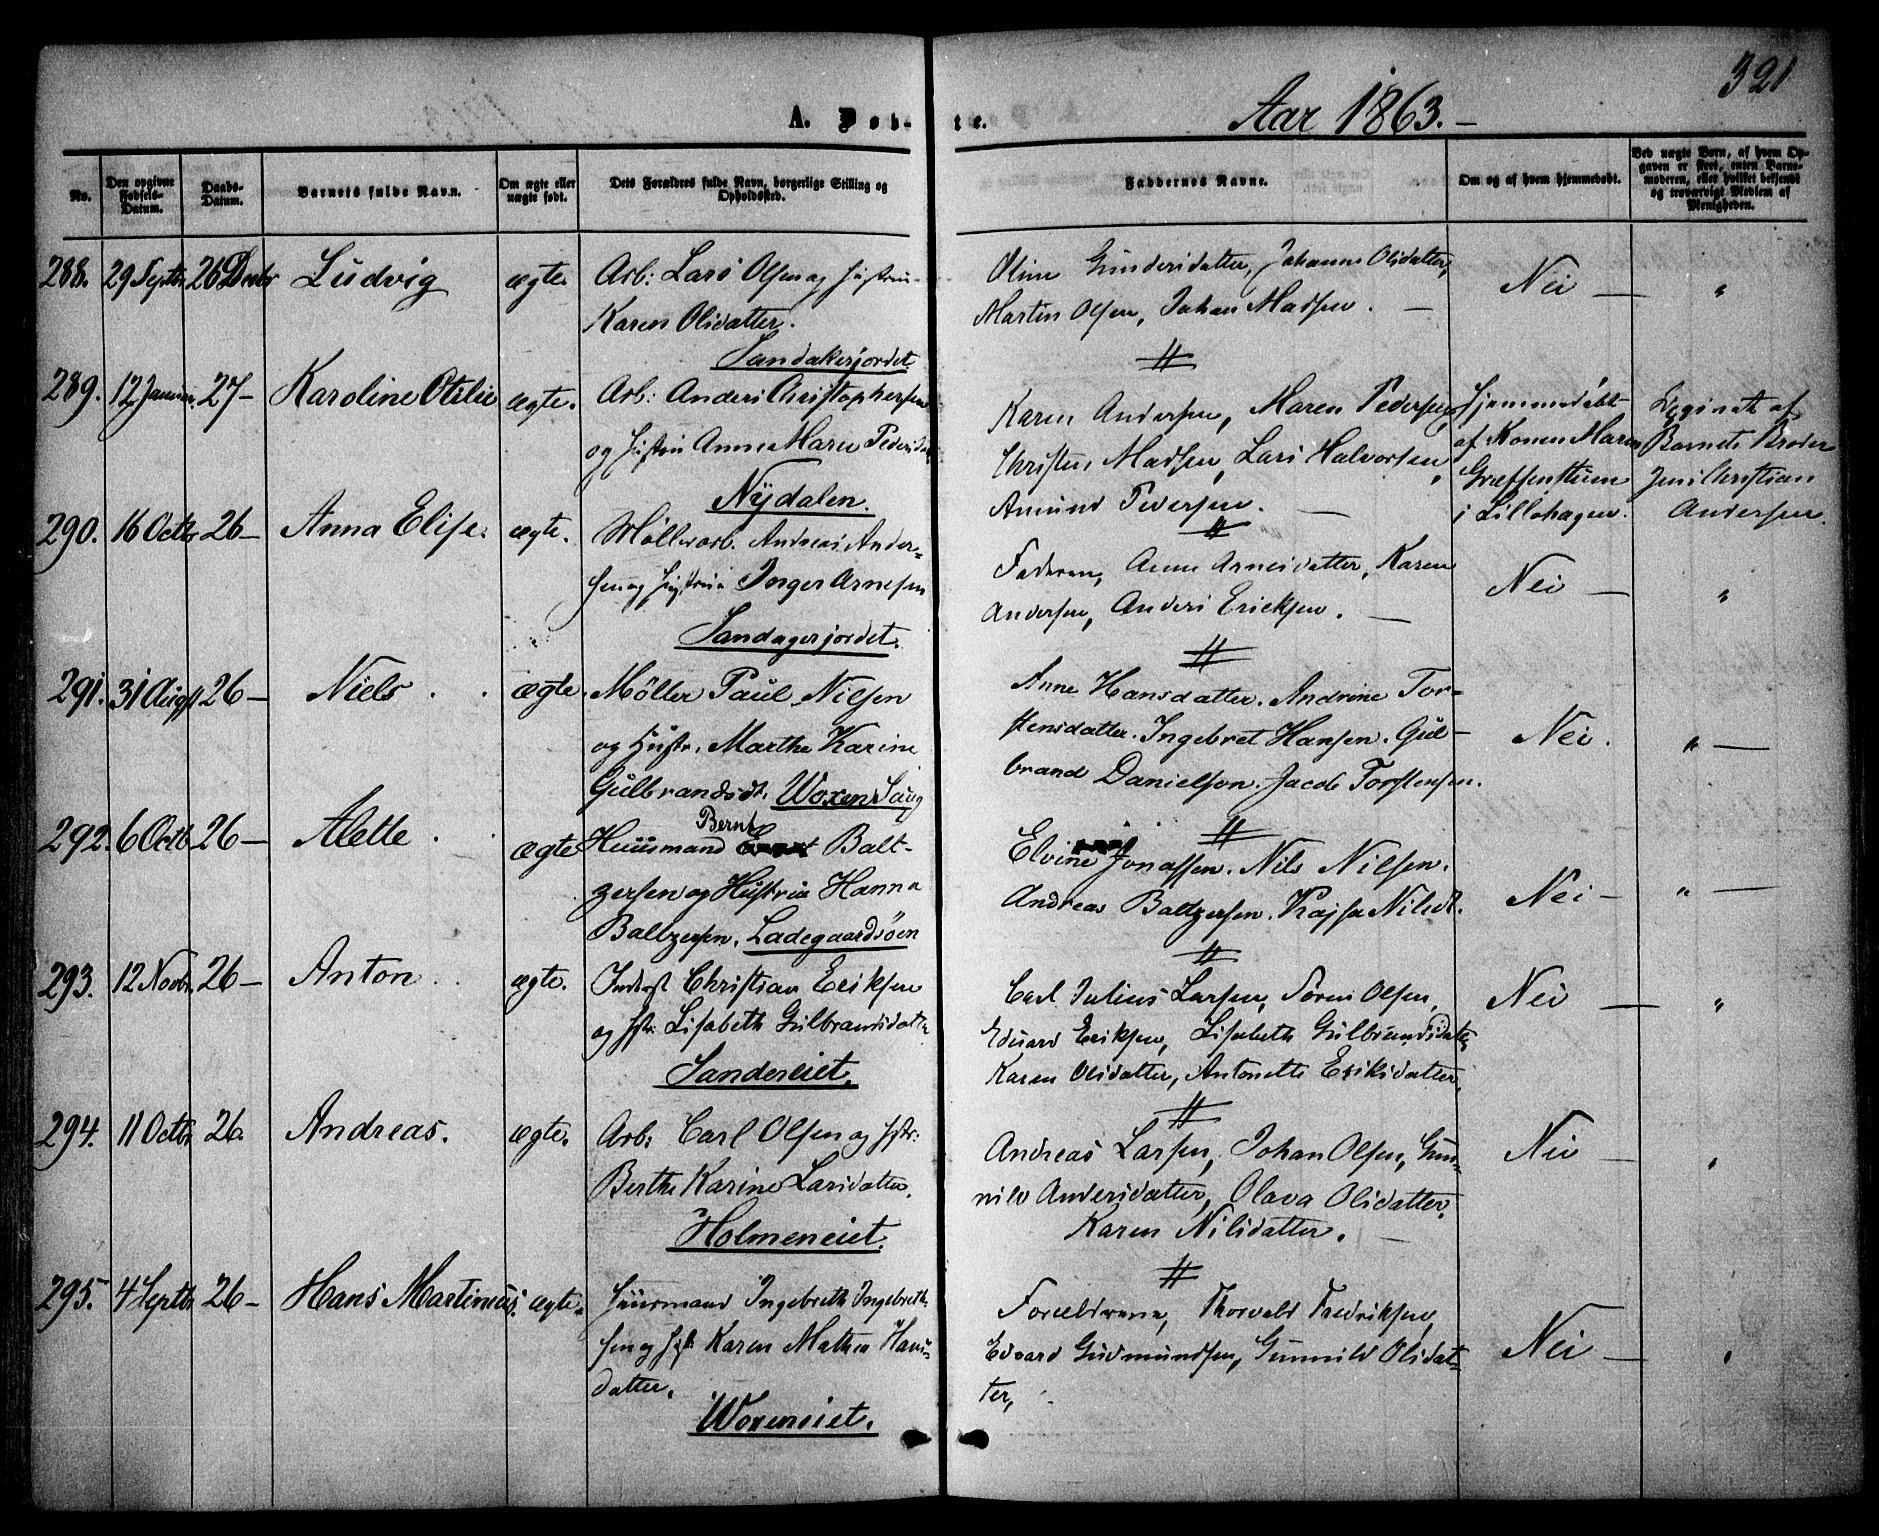 321
A. Døbte.
Aar 1863.
No.
Den opgivne Fødsels-Datum.
Daabs-Datum.
Barnets fulde Navn.
Om ægte eller uægte født.
Dets Forældres fulde Navn, borgerlige Stilling og Opholdssted.
Faddernes Navne.
Om og af hvem hjemmedøbt.
Ved uægte Børn, af hvem Opgaven er skeet, enten Barnemoderen, eller hvilket bekjendt og troværdigt Medlem af Menigheden.
288. 29 Septbr 26 Decbr Ludvig ægte. Arb: Lars Olsen og Hustru
Karen Olsdatter.
Sandakerjordet.
Oline Gundersdatter, Johanne Olsdatter,
Martin Olsen, Johan Madsen. —
Nei — "
289. 12 Januar 27 — Karoline Otilie ægte. Arb: Anders Christophersen
og Hustru Anne Marie Peders
Nydalen.
Karen Andersen, Maren Pedersen,
Christen Madsen, Lars Halvorsen,
Amund Pedersen. —
Hjemmedøbt
af Konen Maren
Græffensteen
i Lillohagen.
Legimt. af
Barnets Broder
Jens Christian
Andersen.
290. 16 Octbr 26 — Anna Elise. ægte. Møllerarb. Andreas Ander-
sen og Hustru Inger Arnesen
Sandagerjordet.
Faderen, Anne Arnesdatter, Karen
Andersen, Anders Ericksen. —
Nei — "
291. 31 Augst 26 — Niels. ægte. Møller Paul Nilsen
og Hustr. Marthe Karine
Gulbrandsdt. Woxen Saug
Anne Hansdatter. Andrine Tor-
stensdatter. Ingebret Hansen. Gul-
brand Danielsen. Jacob Torstensen.
Nei. " —
292. 6 Octb. 26 — Alette. ægte Huusmand Bernt Balt-
zersen og Hustru Hanna
Baltzersen. Ladegaardsøen
Elvine Jonassen. Nils Nilsen.
Andreas Baltzersen. Kajsa Nilsdt.
Nei — " —
293. 12 Novbr. 26 — Anton. ægte. Inderst Christian Eriksen
og Hstr: Lisabeth Gulbrandsdatter
Sandereiet.
Carl Julius Larsen, Søren Olsen,
Eduard Eriksen, Lisabeth Gulbrandsdatter,
Karen Olsdatter, Antonette Eriksdatter,
Nei — "
294. 11 Octbr 26. Andreas. ægte. Arb: Carl Olsen og Hstr:
Berthe Karine Larsdatter.
Holmeneiet.
Andreas Larsen, Johan Olsen, Gun-
nild Andersdatter, Olava Olsdatter,
Karen Nilsdatter. —
Nei — "
295. 4 Septbr 26 — Hans Martinius. ægte. Huusmand Ingebreth Ingebreth-
sen og Hst: Karen Mathea Hans-
datter.
Woxeneiet.
Forældrene, Thorvald Fredriksen,
Edvard Gudmundsen, Gunnild Olsdat-
ter,
Nei — "